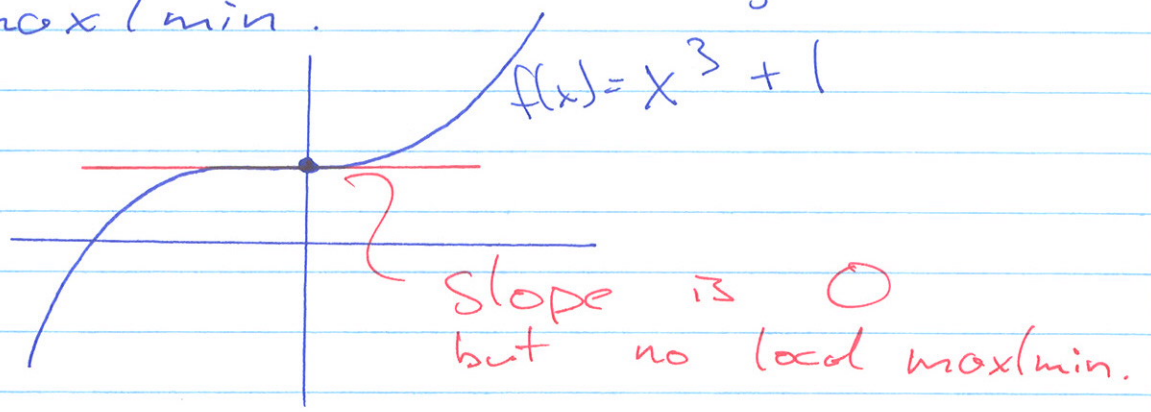 max/min.
f(x)= x³ + 1
slope is 0
but no local max/min.